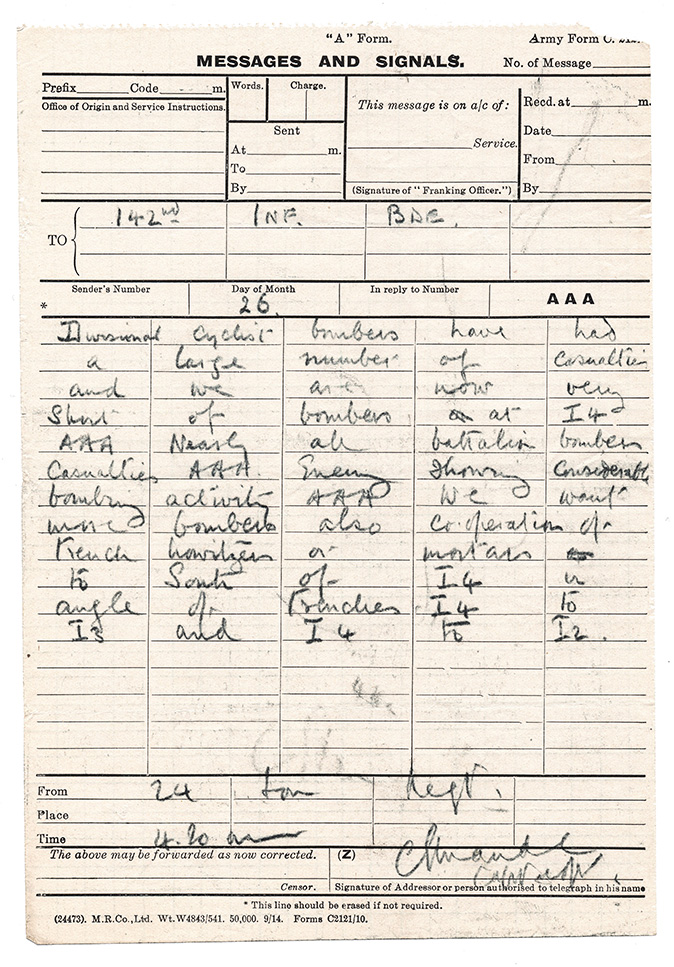 "A" Form. Army Form C.
MESSAGES AND SIGNALS. No. of Message
Prefix Code m. Words. Charge. This message is on a/c of: Recd. at m.
Office of Origin and Service Instructions.
Sent Date
At m. Service. From
To
By (Signature of "Franking Officer.") By
TO 142nd INF. BDE.
Sender's Number Day of Month In reply to Number AAA
* 26.
Divisional cyclist bombers have had
a large number of casualties
and we are now very
short of bombers at I4
AAA Nearly all battalion bombers
casualties AAA. Enemy showing considerable
bombing activity AAA We want
more bombers also co-operation of
trench howitzers or mortars
to South of I4 in
angle of trenches I4 to
I3 and I4 to I2.
From 24 Lon Regt.
Place
Time 4.20 am
The above may be forwarded as now corrected. (Z)
Censor. Signature of Addressor or person authorised to telegraph in his name
* This line should be erased if not required.
(24473). M.R.Co., Ltd. Wt.W4843/541. 50,000. 9/14. Forms C2121/10.